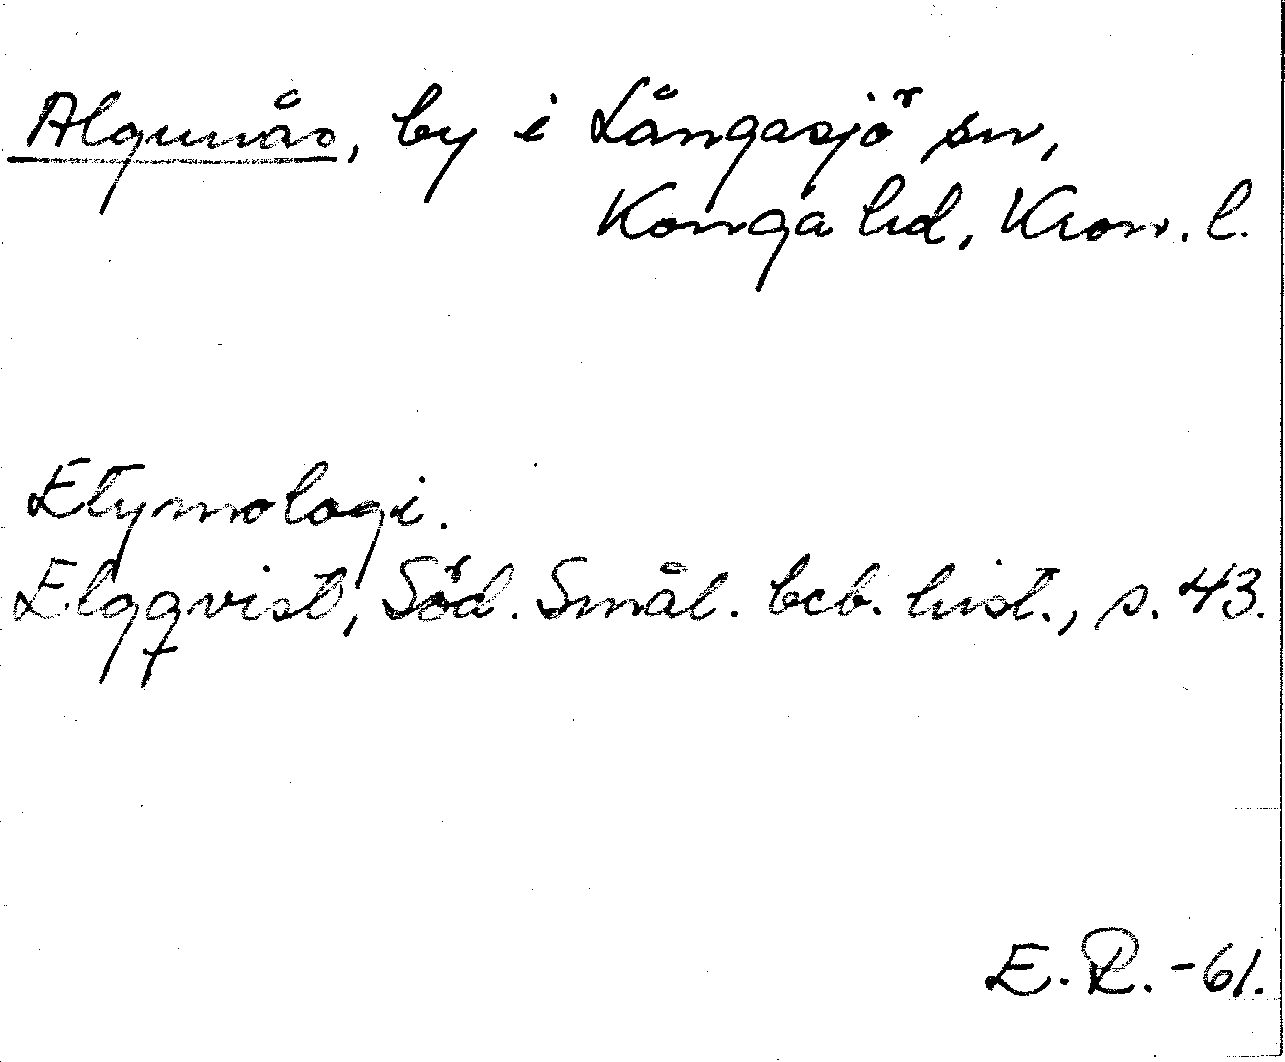 Algunås, by i Långasjö sn,
Konga hd, Kron. l.
Etymologi.
Elgqvist, Söd. Smål. beb. hist., s. 43.
E. R. -61.